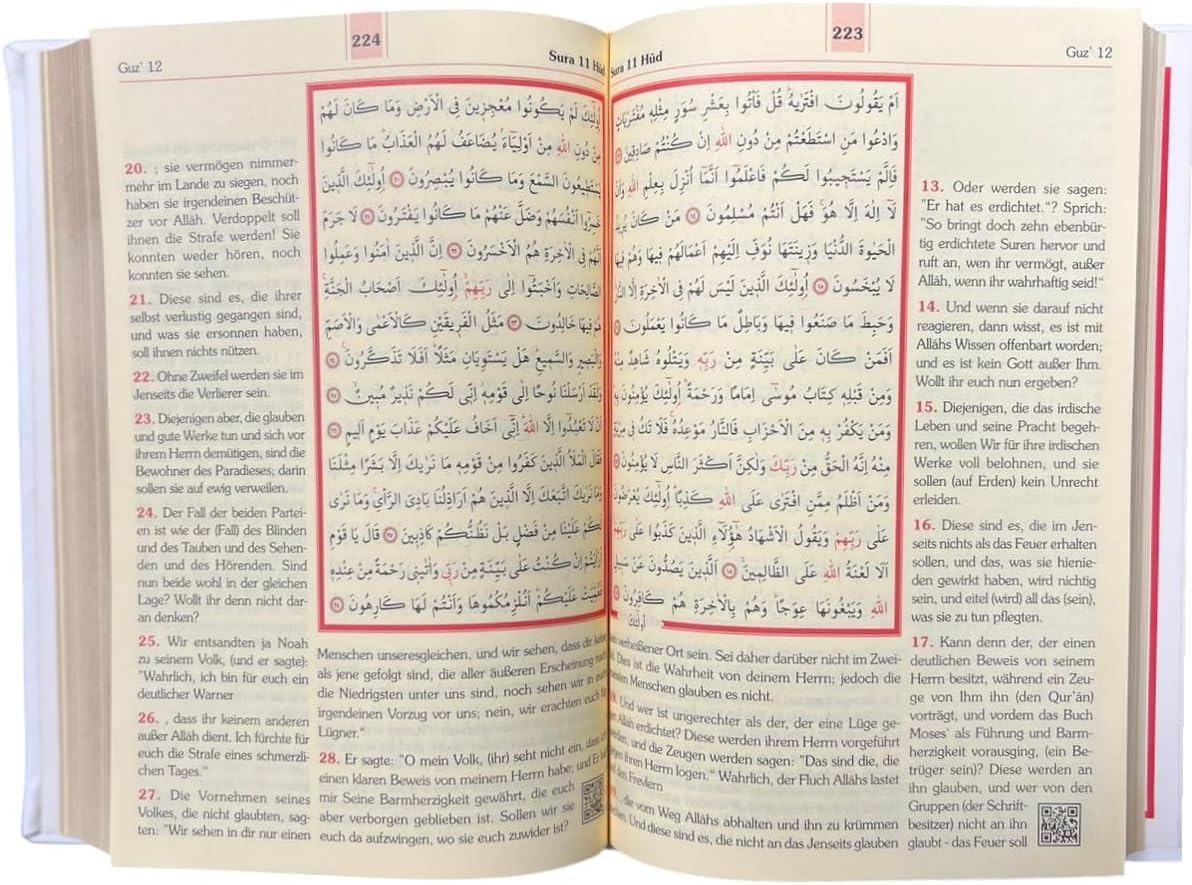 223
Guz' 12
Sura 11 Hûd
اَمْ يَقُولُونَ افْتَرٰيهُ قُلْ فَأْتُوا بِعَشْرِ سُوَرٍ مِثْلِهٖ مُفْتَرَيَاتٍ
وَادْعُوا مَنِ اسْتَطَعْتُمْ مِنْ دُونِ اللّٰهِ اِنْ كُنْتُمْ صَادِقٖينَ ١٣
فَاِلَّمْ يَسْتَجٖيبُوا لَكُمْ فَاعْلَمُوا اَنَّمَا اُنْزِلَ بِعِلْمِ اللّٰهِ وَاَنْ
لَا اِلٰهَ اِلَّا هُوَ فَهَلْ اَنْتُمْ مُسْلِمُونَ ١٤ مَنْ كَانَ يُرٖيدُ
الْحَيٰوةَ الدُّنْيَا وَزٖينَتَهَا نُوَفِّ اِلَيْهِمْ اَعْمَالَهُمْ فٖيهَا وَهُمْ فٖيهَا
لَا يُبْخَسُونَ ١٥ اُولٰٓئِكَ الَّذٖينَ لَيْسَ لَهُمْ فِى الْاٰخِرَةِ اِلَّا النَّارُ
وَحَبِطَ مَا صَنَعُوا فٖيهَا وَبَاطِلٌ مَا كَانُوا يَعْمَلُونَ ١٦
اَفَمَنْ كَانَ عَلٰى بَيِّنَةٍ مِنْ رَبِّهٖ وَيَتْلُوهُ شَاهِدٌ مِنْهُ
وَمِنْ قَبْلِهٖ كِتَابُ مُوسٰٓى اِمَامًا وَرَحْمَةً اُولٰٓئِكَ يُؤْمِنُونَ بِهٖ
وَمَنْ يَكْفُرْ بِهٖ مِنَ الْاَحْزَابِ فَالنَّارُ مَوْعِدُهُ فَلَا تَكُ فٖى مِرْيَةٍ
مِنْهُ اِنَّهُ الْحَقُّ مِنْ رَبِّكَ وَلٰكِنَّ اَكْثَرَ النَّاسِ لَا يُؤْمِنُونَ ١٧
وَمَنْ اَظْلَمُ مِمَّنِ افْتَرٰى عَلَى اللّٰهِ كَذِبًا اُولٰٓئِكَ يُعْرَضُونَ
عَلٰى رَبِّهِمْ وَيَقُولُ الْاَشْهَادُ هٰٓؤُلَاءِ الَّذٖينَ كَذَبُوا عَلٰى رَبِّهِمْ
اَلَا لَعْنَةُ اللّٰهِ عَلَى الظَّالِمٖينَ ١٨ اَلَّذٖينَ يَصُدُّونَ عَنْ سَبٖيلِ
اللّٰهِ وَيَبْغُونَهَا عِوَجًا وَهُمْ بِالْاٰخِرَةِ هُمْ كَافِرُونَ ١٩
اُولٰٓئِكَ
13. Oder werden sie sagen:
"Er hat es erdichtet."? Sprich:
"So bringt doch zehn ebenbür-
tig erdichtete Suren hervor und
ruft an, wen ihr vermögt, außer
Allâh, wenn ihr wahrhaftig seid!"
14. Und wenn sie darauf nicht
reagieren, dann wisst, es ist mit
Allâhs Wissen offenbart worden;
und es ist kein Gott außer Ihm.
Wollt ihr euch nun ergeben?
15. Diejenigen, die das irdische
Leben und seine Pracht begeh-
ren, wollen Wir für ihre irdischen
Werke voll belohnen, und sie
sollen (auf Erden) kein Unrecht
erleiden.
16. Diese sind es, die im Jen-
seits nichts als das Feuer erhalten
sollen, und das, was sie hienie-
den gewirkt haben, wird nichtig
sein, und eitel (wird) all das (sein),
was sie zu tun pflegten.
17. Kann denn der, der einen
deutlichen Beweis von seinem
Herrn besitzt, während ein Zeu-
ge von Ihm ihn (den Qur'ân)
vorträgt, und vordem das Buch
Moses' als Führung und Barm-
herzigkeit vorausging, (ein Be-
trüger sein)? Diese werden an
ihn glauben, und wer von den
Gruppen (der Schrift-
besitzer) nicht an ihn
glaubt - das Feuer soll
verheißener Ort sein. Sei daher darüber nicht im Zwei-
Dies ist die Wahrheit von deinem Herrn; jedoch die
Menschen glauben es nicht.
Und wer ist ungerechter als der, der eine Lüge ge-
Allâh erdichtet? Diese werden ihrem Herrn vorgeführt
und die Zeugen werden sagen: "Das sind die, die
ihren Herrn logen." Wahrlich, der Fluch Allâhs lastet
den Frevlern
die vom Weg Allâhs abhalten und ihn zu krümmen
Und diese sind es, die nicht an das Jenseits glauben
224
Guz' 12
Sura 11 Hûd
اُولٰٓئِكَ لَمْ يَكُونُوا مُعْجِزٖينَ فِى الْاَرْضِ وَمَا كَانَ لَهُمْ
مِنْ دُونِ اللّٰهِ مِنْ اَوْلِيَاءَ يُضَاعَفُ لَهُمُ الْعَذَابُ مَا كَانُوا
يَسْتَطٖيعُونَ السَّمْعَ وَمَا كَانُوا يُبْصِرُونَ ٢٠ اُولٰٓئِكَ الَّذٖينَ
خَسِرُوا اَنْفُسَهُمْ وَضَلَّ عَنْهُمْ مَا كَانُوا يَفْتَرُونَ ٢١ لَا جَرَمَ
اَنَّهُمْ فِى الْاٰخِرَةِ هُمُ الْاَخْسَرُونَ ٢٢ اِنَّ الَّذٖينَ اٰمَنُوا وَعَمِلُوا
الصَّالِحَاتِ وَاَخْبَتُوا اِلٰى رَبِّهِمْ اُولٰٓئِكَ اَصْحَابُ الْجَنَّةِ
هُمْ فٖيهَا خَالِدُونَ ٢٣ مَثَلُ الْفَرٖيقَيْنِ كَالْاَعْمٰى وَالْاَصَمِّ
وَالْبَصٖيرِ وَالسَّمٖيعِ هَلْ يَسْتَوِيَانِ مَثَلًا اَفَلَا تَذَكَّرُونَ ٢٤
وَلَقَدْ اَرْسَلْنَا نُوحًا اِلٰى قَوْمِهٖ اِنّٖى لَكُمْ نَذٖيرٌ مُبٖينٌ ٢٥
اَنْ لَا تَعْبُدُوا اِلَّا اللّٰهَ اِنّٖى اَخَافُ عَلَيْكُمْ عَذَابَ يَوْمٍ اَلٖيمٍ ٢٦
فَقَالَ الْمَلَاُ الَّذٖينَ كَفَرُوا مِنْ قَوْمِهٖ مَا نَرٰيكَ اِلَّا بَشَرًا مِثْلَنَا
وَمَا نَرٰيكَ اتَّبَعَكَ اِلَّا الَّذٖينَ هُمْ اَرَاذِلُنَا بَادِىَ الرَّأْىِ وَمَا نَرٰى
لَكُمْ عَلَيْنَا مِنْ فَضْلٍ بَلْ نَظُنُّكُمْ كَاذِبٖينَ ٢٧ قَالَ يَا قَوْمِ
اَرَاَيْتُمْ اِنْ كُنْتُ عَلٰى بَيِّنَةٍ مِنْ رَبّٖى وَاٰتٰينٖى رَحْمَةً مِنْ عِنْدِهٖ
فَعُمِّيَتْ عَلَيْكُمْ اَنُلْزِمُكُمُوهَا وَاَنْتُمْ لَهَا كَارِهُونَ ٢٨
20. ; sie vermögen nimmer-
mehr im Lande zu siegen, noch
haben sie irgendeinen Beschüt-
zer vor Allâh. Verdoppelt soll
ihnen die Strafe werden! Sie
konnten weder hören, noch
konnten sie sehen.
21. Diese sind es, die ihrer
selbst verlustig gegangen sind,
und was sie ersonnen haben,
soll ihnen nichts nützen.
22. Ohne Zweifel werden sie im
Jenseits die Verlierer sein.
23. Diejenigen aber, die glauben
und gute Werke tun und sich vor
ihrem Herrn demütigen, sind die
Bewohner des Paradieses; darin
sollen sie auf ewig verweilen.
24. Der Fall der beiden Partei-
en ist wie der (Fall) des Blinden
und des Tauben und des Sehen-
den und des Hörenden. Sind
nun beide wohl in der gleichen
Lage? Wollt ihr denn nicht dar-
an denken?
25. Wir entsandten ja Noah
zu seinem Volk, (und er sagte):
"Wahrlich, ich bin für euch ein
deutlicher Warner
26. , dass ihr keinem anderen
außer Allâh dient. Ich fürchte für
euch die Strafe eines schmerzli-
chen Tages."
27. Die Vornehmen seines
Volkes, die nicht glaubten, sag-
ten: "Wir sehen in dir nur einen
Menschen unseresgleichen, und wir sehen, dass dir keine
als jene gefolgt sind, die aller äußeren Erscheinung nach
die Niedrigsten unter uns sind, noch sehen wir in euch
irgendeinen Vorzug vor uns; nein, wir erachten euch für
Lügner."
28. Er sagte: "O mein Volk, (ihr) seht nicht ein, dass ich
einen klaren Beweis von meinem Herrn habe; und Er hat
mir Seine Barmherzigkeit gewährt, die euch
aber verborgen geblieben ist. Sollen wir sie
euch da aufzwingen, wo sie euch zuwider ist?